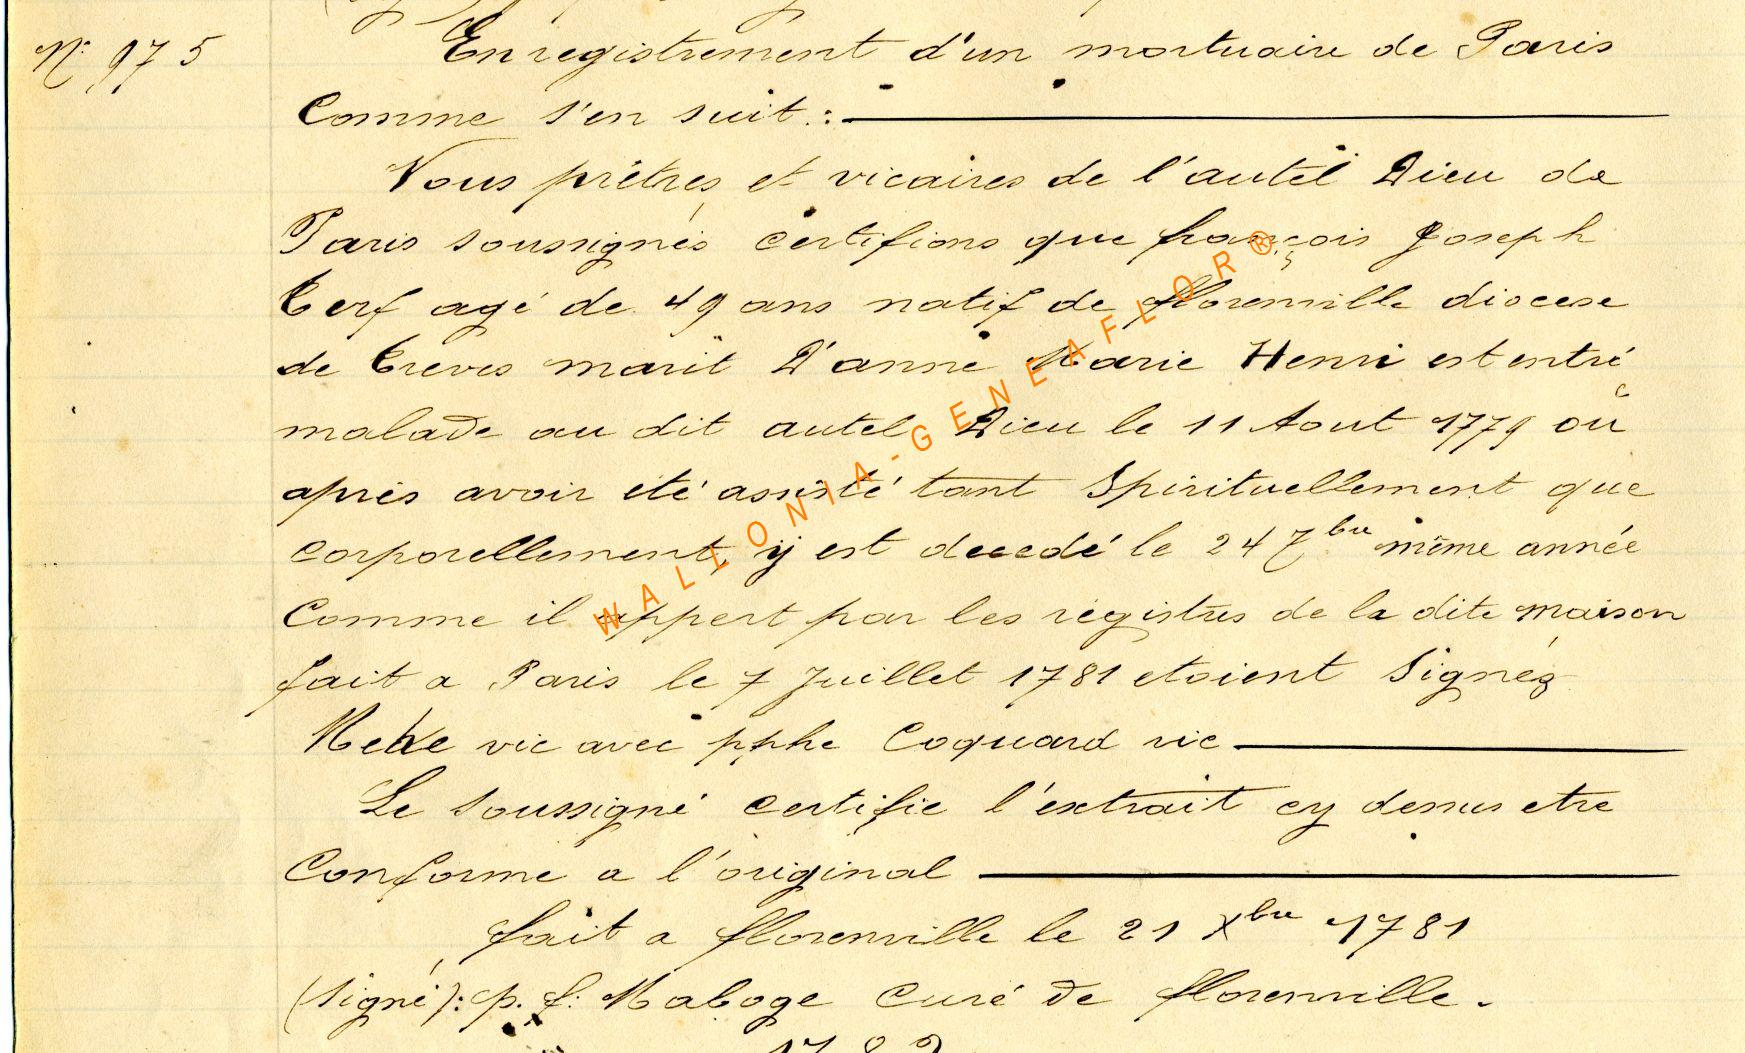 N° 975 Enregistrement d'un mortuaire de Paris
Comme s'en suit :
Nous prêtres et vicaires de l'autel Dieu de
Paris soussignés certifions que françois Joseph
Cerf agé de 49 ans natif de florenville diocese
de Creves marit D'anne Marie Henri est entré
malade au dit autel Dieu le 11 Aout 1779 où
aprés avoir eté assisté tant Spirituellement que
corporellement, ÿ est decedé le 24 7bre même année
Comme il appert par les régistres de la dite maison
fait a Paris le 7 Juillet 1781 etoient Signéz
vic avec pphe Coquard vic
Le Soussigné certifie l'extrait cy dessus etre
Conforme a l'original
fait a florenville le 21 Xbre 1781
(Signé): p. f: Maboge Curé de florenville.
WALLONIA-GENEAFLOR®